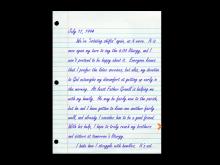 July 11, 1998
We're "rotating shifts" again, as it were. It is
once again my turn to say the 6:00 Liturgy, and I
can't pretend to be happy about it. Everyone knows
that I prefer the later services, but alas, my devotion
to God outweighs my discomfort at getting up early in
the morning. At least Father Grandl is helping me
with my homily. He may be fairly new to the parish,
but he and I have gotten to know one another fairly
well, and already I consider him to be a good friend.
With his help, I hope to truly reach my brothers
and sisters at tomorrow's Liturgy.
I hate how I struggle with homilies. It's not